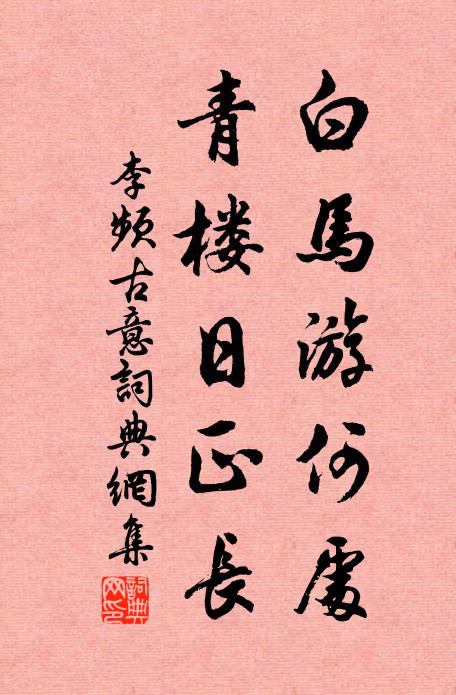 白馬游何處
青楼日正長
李频古意詞典網集
詞典网印